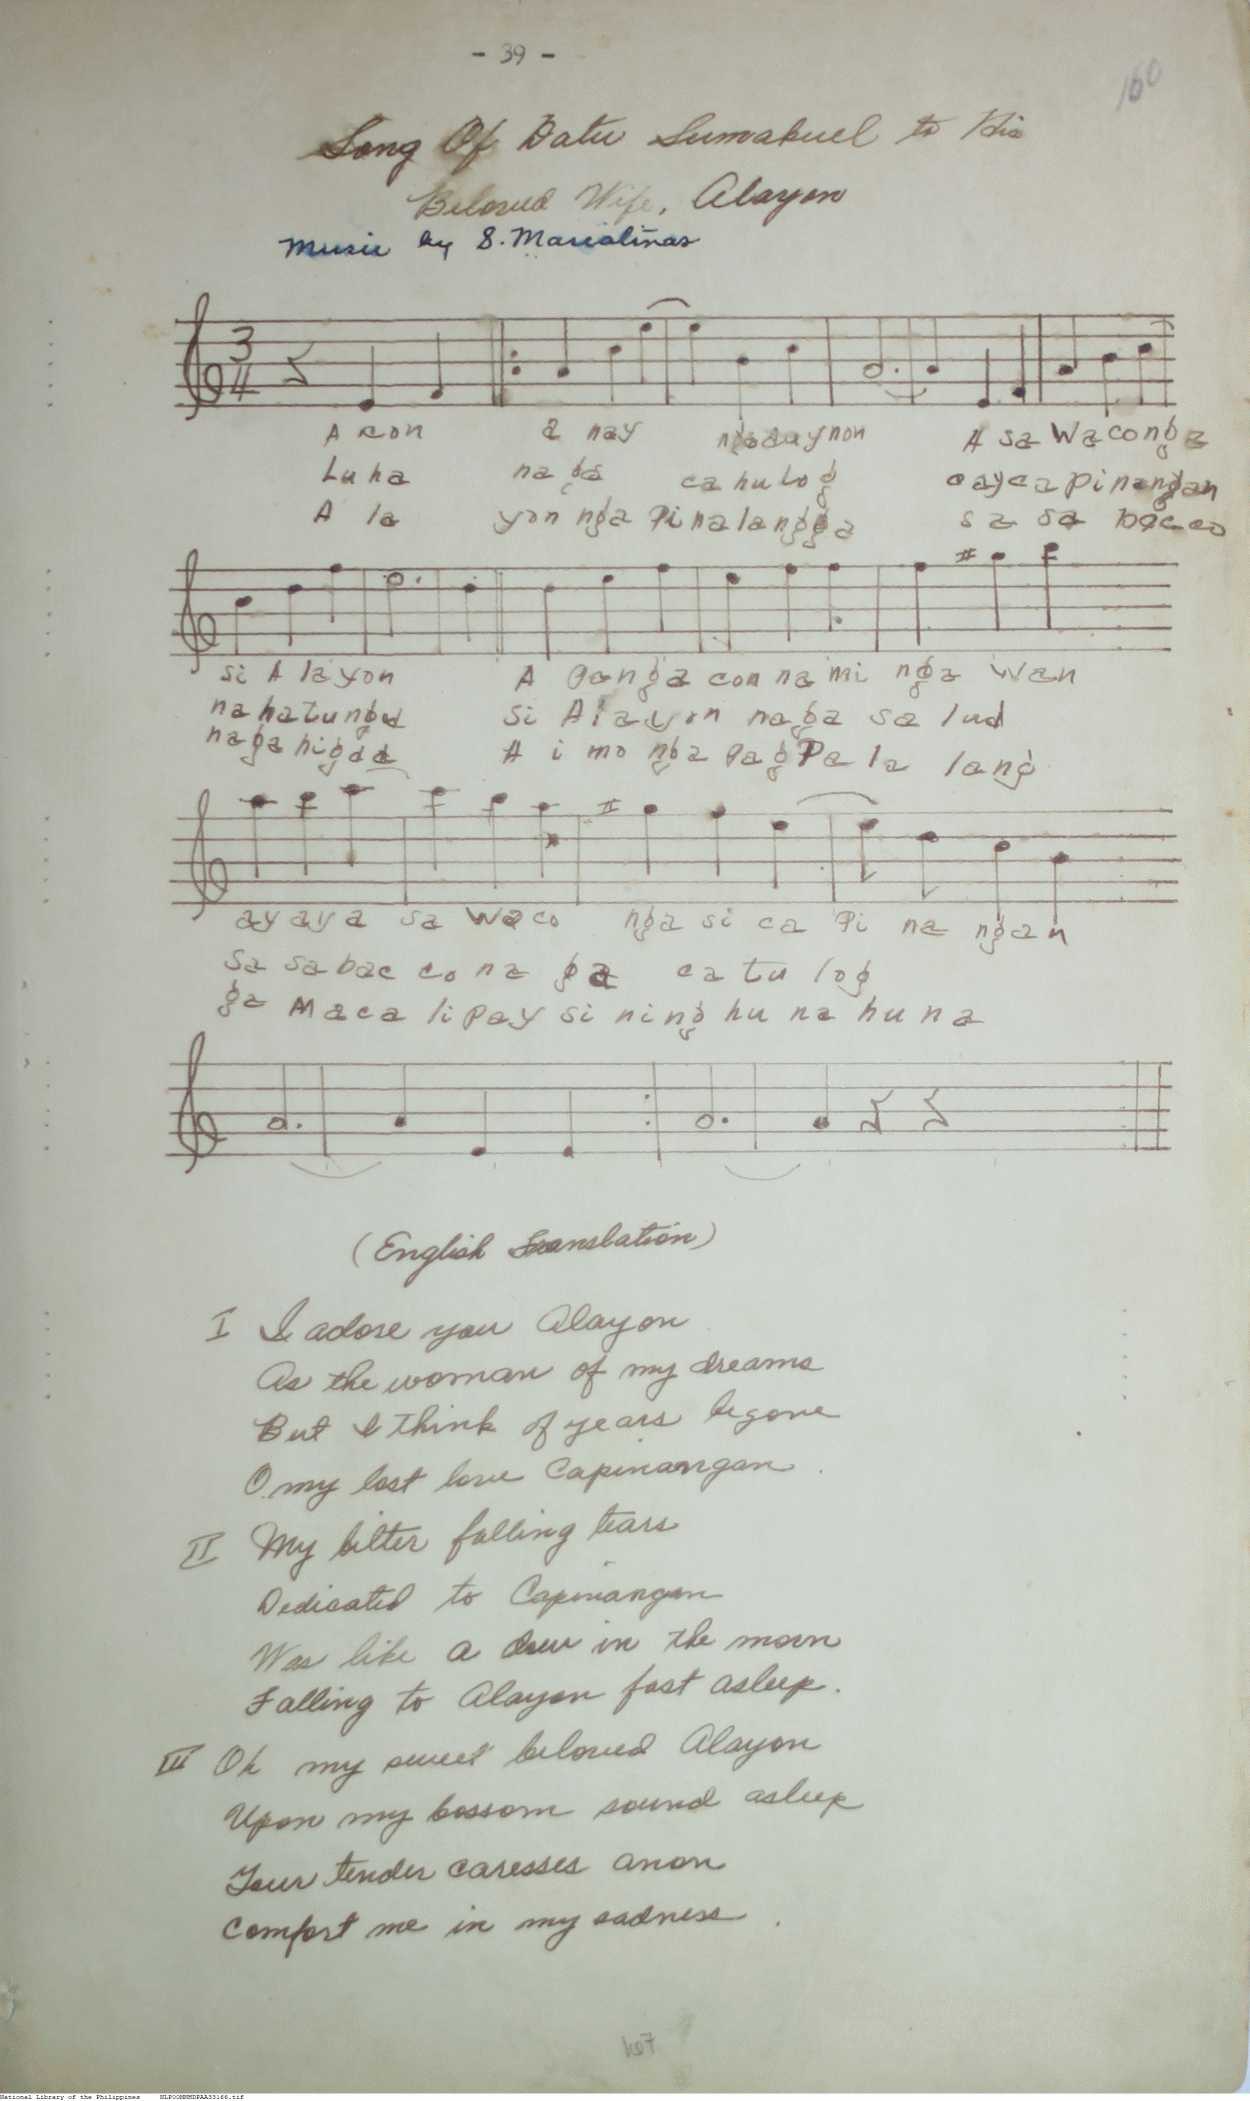 - 39 -
160
Song Of Datu Sumakuel to His
Beloved Wife, Alayon
Music by S. Marcaliñas
3
4
A con a nay A sa wa co nga
Lu ha na ga ca hu log cay ca pi na ngan
A la yon nga Pi na la ngga sa sa bac co
si A la yon A Pa nga con na mi nga wan
na ha tu ngud si A la yon na ga sa lud
na ga hi gda A i mo nga Pag Pa la lang
ay ay a sa wa co nga si ca Pi na ngan
sa sa bac co na ga ca tu log
ga Maca li pay si ning hu na hu na
(English Translation)
I I adore you Alayon
As the woman of my dreams
But I think of years begone
O my lost love Capinangan
II My bitter falling tears
Dedicated to Capinangan
Was like a dew in the morn
Falling to Alayon fast asleep.
III Oh my sweet beloved Alayon
Upon my bossom sound asleep
Your tender caresses anon
Comfort me in my sadness.
National Library of the Philippines